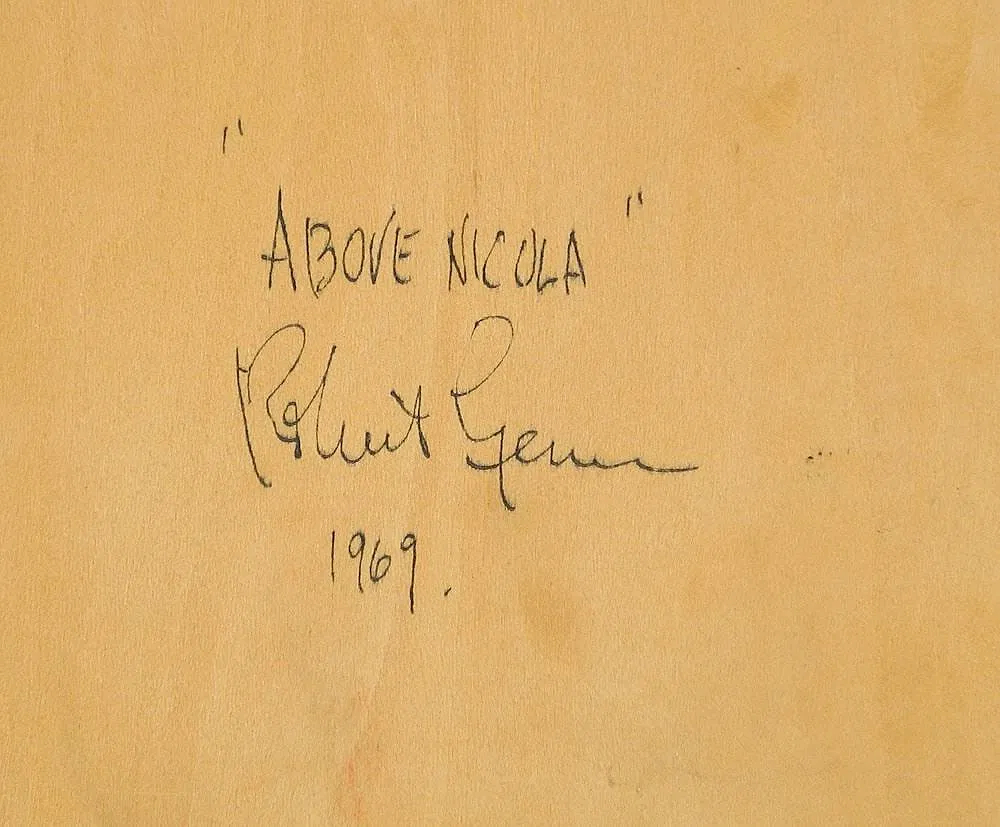 "ABOVE NICOLA"
Robert Genn
1969.